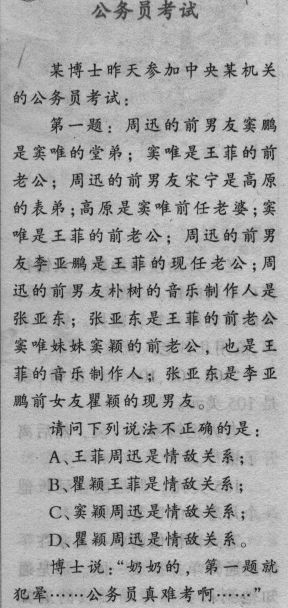 公务员考试
某博士昨天参加中央某机关
的公务员考试：
第一题：周迅的前男友窦鹏
是窦唯的堂弟；窦唯是王菲的前
老公；周迅的前男友宋宁是高原
的表弟；高原是窦唯前任老婆；窦
唯是王菲的前老公；周迅的前男
友李亚鹏是王菲的现任老公；周
迅的前男友朴树的音乐制作人是
张亚东；张亚东是王菲的前老公
窦唯妹妹窦颖的前老公，也是王
菲的音乐制作人；张亚东是李亚
鹏前女友瞿颖的现男友。
请问下列说法不正确的是：
A、王菲周迅是情敌关系；
B、瞿颖王菲是情敌关系；
C、窦颖周迅是情敌关系；
D、瞿颖周迅是情敌关系。
博士说：“奶奶的，第一题就
犯晕……公务员真难考啊……”